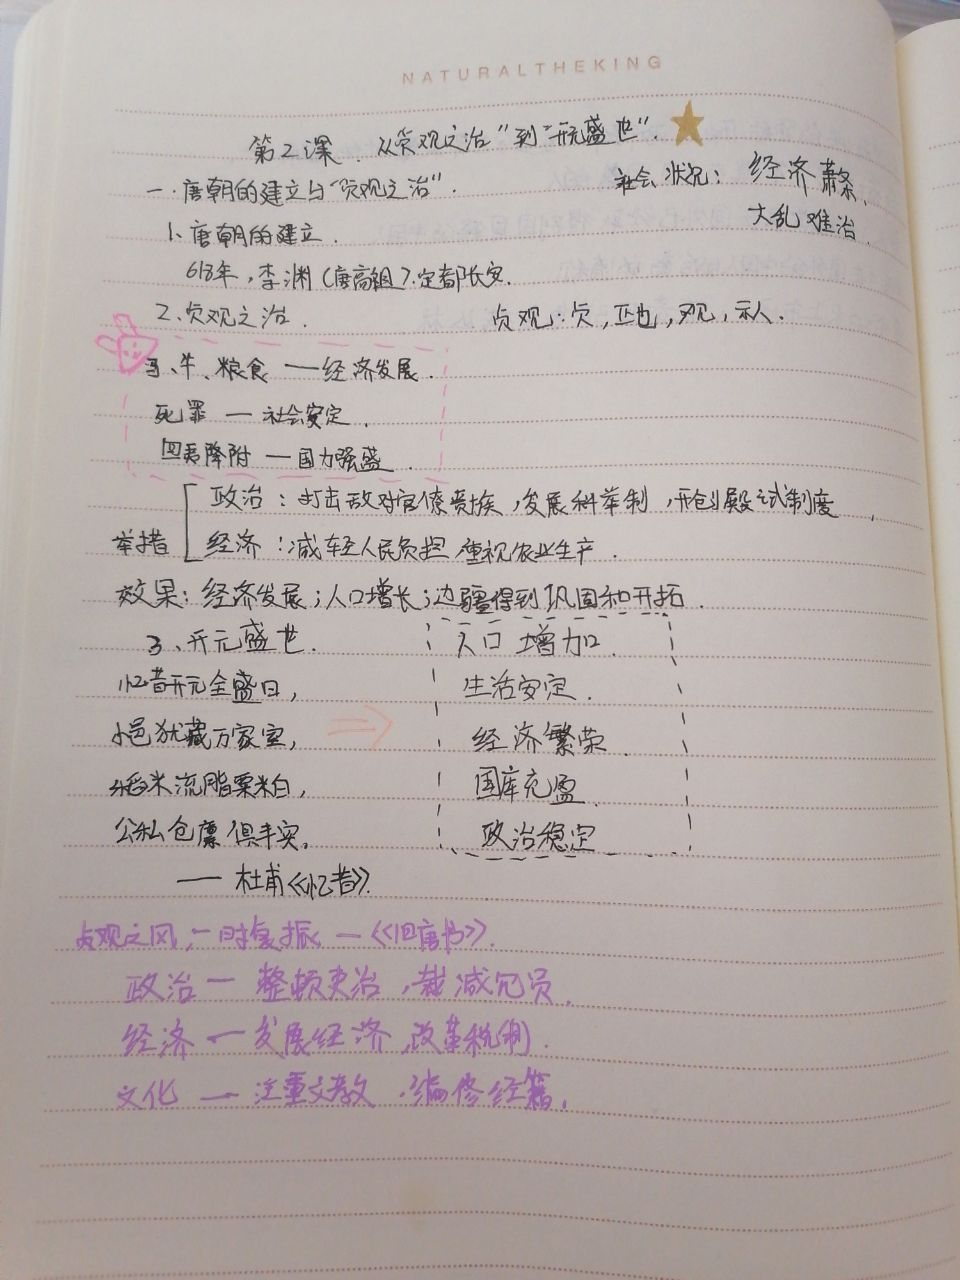 NATURALTHEKING
第2课. 从"贞观之治"到"开元盛世".
一.唐朝的建立与"贞观之治".
社会状况: 经济萧条,
大乱难治.
1、唐朝的建立.
618年,李渊(唐高祖).定都长安.
2.贞观之治.
贞观:贞,正也,观,示人.
马、牛、粮食——经济发展.
死罪—社会安定.
四夷降附—国力强盛.
举措
政治:打击敌对官僚贵族,发展科举制,开创殿试制度.
经济:减轻人民负担 重视农业生产.
效果:经济发展;人口增长;边疆得到巩固和开拓.
3、开元盛世.
忆昔开元全盛日,
小邑犹藏万家室,
稻米流脂粟米白,
公私仓廪俱丰实.
——杜甫《忆昔》.
人口增加.
生活安定.
经济繁荣.
国库充盈.
政治稳定
贞观之风,一时复振—《旧唐书》.
政治—整顿吏治,裁减冗员.
经济—发展经济,改革税制.
文化—注重文教,编修经籍.